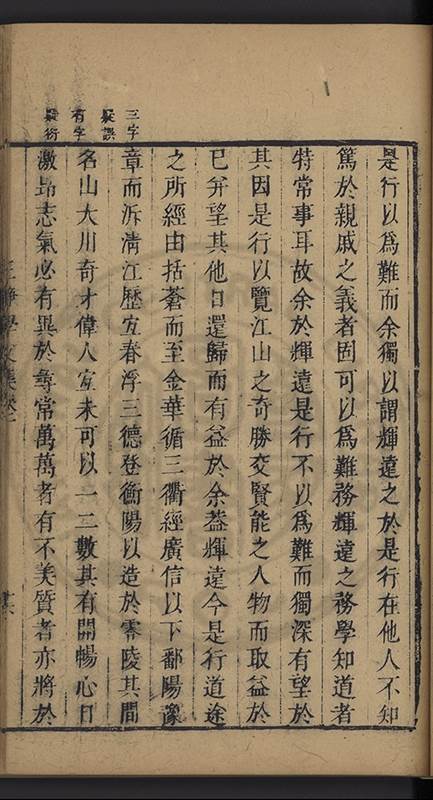 是行以爲難而余獨以謂輝遠之於是行在他人不知
篤於親戚之義者固可以爲難務輝遠之務學知道者
特常事耳故余於輝遠是行不以爲難而獨深有望於
其因是行以覽江山之奇勝交賢能之人物而取益於
已弁望其他日還歸而有益於余葢輝遠今是行道途
之所經由括蒼而至金華循三衢經廣信以下鄱陽豫
章而泝清江歷宜春浮三德登衡陽以造於零陵其間
名山大川奇才偉人宜未可以一二數其有開暢心目
激昂志氣必有異於尋常萬萬者有不美質者亦將於
三字
疑誤
有字
疑衍